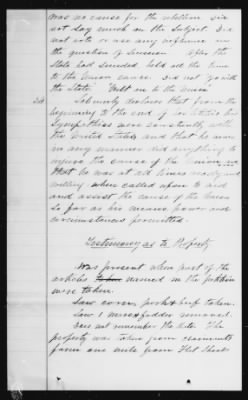 was no cause for the rebellion. Did
not say much on the subject. Did
not vote or use any influence on
the question of Secession. After the
State had seceded held all the time
to the Union cause. Did not "go with
the State". "Held on to the Union"
Solemnly declares that from the
beginning to the end of hostilities his
sympathies were constantly with
the United States and that he never
in any manner did anything to
injure the cause of the Union, and
that he was at all times ready and
willing when called upon to aid
and assist the cause of the Union
so far as his means power and
circumstances permitted.
Testimony as to Property
Was present when part of the
articles named in the petition
were taken.
Saw corn, pork & beef taken.
Saw 1 mare & fodder removed.
Does not remember the date. The
property was taken from claimants
farm one mile from Flat Shoals